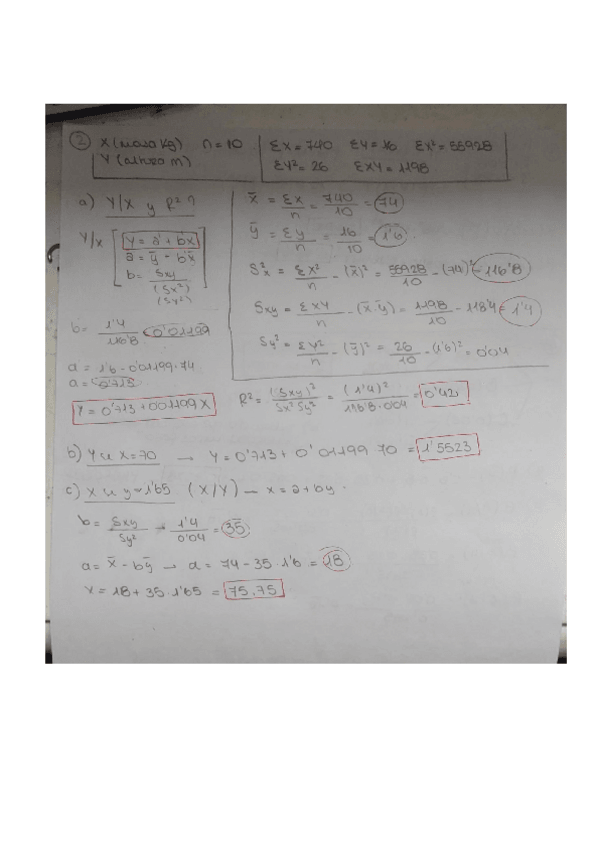 ② X (masa Kg) n = 10 ΣX = 740 ΣY = 16 ΣX² = 55928
Y (altura m) ΣY² = 26 ΣXY = 1198
a) Y/X y R²?
Y/X [ Y = a + bX
a = ȳ - bx̄
b = Sxy / (Sx²)
(Sy²) ]
b = 1'4 / 116'8 = 0'01199
a = 1'6 - 0'01199·74
a = 0'713
Y = 0'713 + 001199 X
x̄ = ΣX / n = 740 / 10 = 74
ȳ = Σy / n = 16 / 10 = 1'6
S²x = ΣX² / n - (x̄)² = 55928 / 10 - (74)² = 116'8
Sxy = ΣXY / n - (x̄·ȳ) = 1198 / 10 - 118'4 = 1'4
Sy² = ΣY² / n - (ȳ)² = 26 / 10 - (1'6)² = 0'04
R² = (Sxy)² / Sx² Sy² = (1'4)² / 116'8·0'04 = 0'42
b) Y si X = 70 → Y = 0'713 + 0'01199·70 = 1'5523
c) X si y = 1'65 (X/Y) — x = a + by
b = Sxy / Sy² → 1'4 / 0'04 = 35
a = x̄ - bȳ → a = 74 - 35·1'6 = 18
x = 18 + 35·1'65 = 75,75